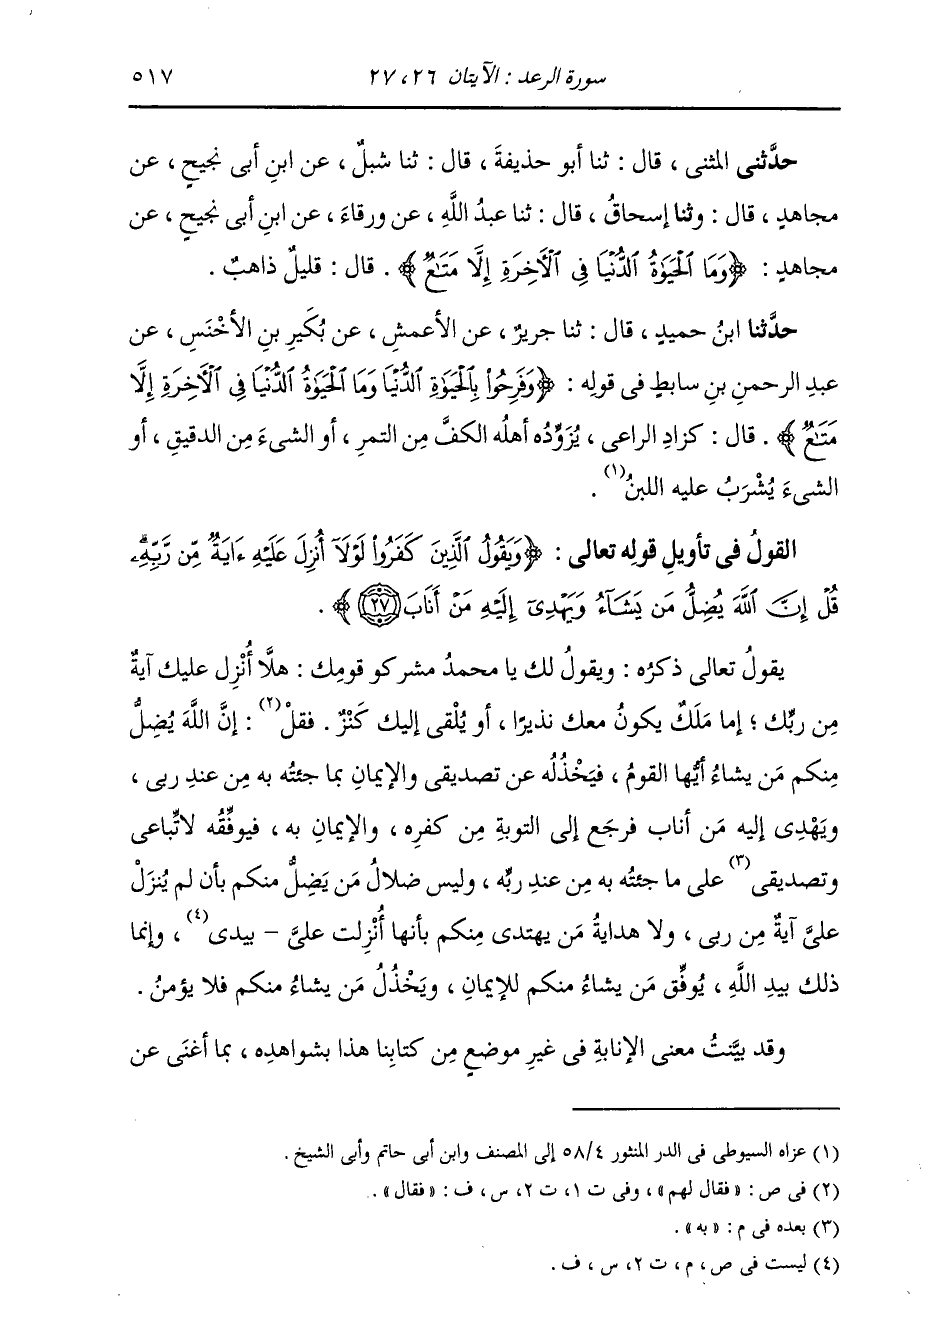 سورة الرعد : الآيتان ٢٦ ، ٢٧ ٥١٧
حدَّثنى المثنى ، قال : ثنا أبو حذيفةَ ، قال : ثنا شبلٌ ، عن ابنِ أبى نجيحٍ ، عن
مجاهدٍ ، قال : وثنا إسحاقُ ، قال : ثنا عبدُ اللَّهِ ، عن ورقاءَ ، عن ابنِ أبى نجيحٍ ، عن
مجاهدٍ : ﴿وَمَا ٱلْحَيَوٰةُ ٱلدُّنْيَا فِى ٱلْأَخِرَةِ إِلَّا مَتَٰعٌ﴾ . قال : قليلٌ ذاهبٌ .
حدَّثنا ابنُ حميدٍ ، قال : ثنا جريرٌ ، عن الأعمشِ ، عن بُكَيرِ بنِ الأَخْنَسِ ، عن
عبدِ الرحمنِ بنِ سابطٍ فى قولِه : ﴿وَفَرِحُوا۟ بِٱلْحَيَوٰةِ ٱلدُّنْيَا وَمَا ٱلْحَيَوٰةُ ٱلدُّنْيَا فِى ٱلْأَخِرَةِ إِلَّا
مَتَٰعٌ﴾ . قال : كزادِ الراعى ، يُزَوِّدُه أهلُه الكفَّ مِن التمرِ ، أو الشىءَ مِن الدقيقِ ، أو
الشىءَ يُشْرَبُ عليه اللبنُ(١) .
القولُ فى تأويلِ قولِه تعالى : ﴿وَيَقُولُ ٱلَّذِينَ كَفَرُوا۟ لَوْلَآ أُنزِلَ عَلَيْهِ ءَايَةٌ مِّن رَّبِّهِۦۗ
قُلْ إِنَّ ٱللَّهَ يُضِلُّ مَن يَشَآءُ وَيَهْدِىٓ إِلَيْهِ مَنْ أَنَابَ ٢٧﴾ .
يقولُ تعالى ذكرُه : ويقولُ لك يا محمدُ مشركو قومِك : هلَّا أُنْزِل عليك آيةٌ
مِن ربِّك ؛ إما مَلَكٌ يكونُ معك نذيرًا ، أو يُلْقى إليك كَنْزٌ . فقلْ(٢) : إنَّ اللَّهَ يُضِلُّ
مِنكم مَن يشاءُ أيُّها القومُ ، فيَخْذُلُه عن تصديقى والإيمانِ بما جئتُه به مِن عندِ ربى ،
ويَهْدِى إليه مَن أناب فرجَع إلى التوبةِ مِن كفرِه ، والإيمانِ به ، فيوفِّقُه لاتِّباعى
وتصديقى(٣) على ما جئتُه به مِن عندِ ربِّه ، وليس ضلالُ مَن يَضِلُّ منكم بأن لم يُنزَلْ
علىَّ آيةٌ مِن ربى ، ولا هدايةُ مَن يهتدى مِنكم بأنها أُنْزِلت علىَّ - بيدى(٤) ، وإنما
ذلك بيدِ اللَّهِ ، يُوفِّق مَن يشاءُ منكم للإيمانِ ، ويَخْذُلُ مَن يشاءُ منكم فلا يؤمنُ .
وقد بيَّنتُ معنى الإنابةِ فى غيرِ موضعٍ مِن كتابِنا هذا بشواهدِه ، بما أغنَى عن
(١) عزاه السيوطى فى الدر المنثور ٥٨/٤ إلى المصنف وابن أبى حاتم وأبى الشيخ .
(٢) فى ص : «فقال لهم» ، وفى ت ١ ، ت ٢ ، س ، ف : «فقال» .
(٣) بعده فى م : «به» .
(٤) ليست فى ص ، م ، ت ٢ ، س ، ف .